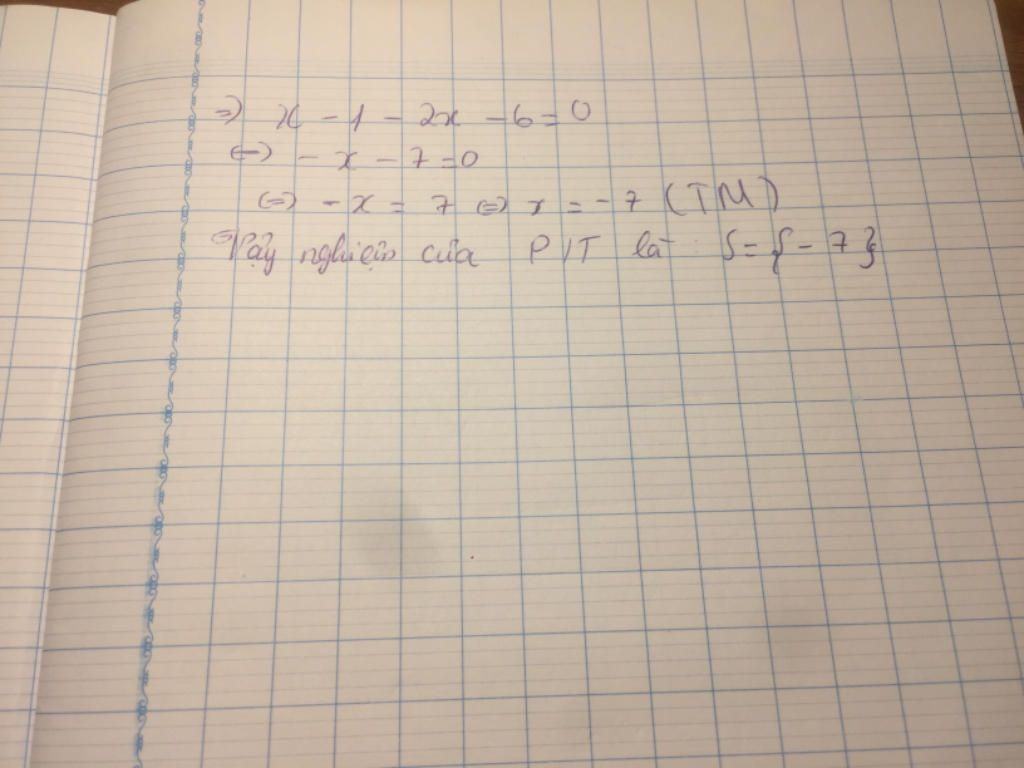 => x - 1 - 2x - 6 = 0
<=> - x - 7 = 0
<=> - x = 7 <=> x = - 7 (TM)
=> Vậy nghiệm của P/T là : S = { - 7 }